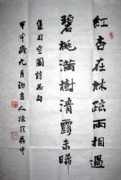 紅杏在林疏雨相過
碧桃滿樹清露未晞
集司空圖詩品句
甲申歲九月初